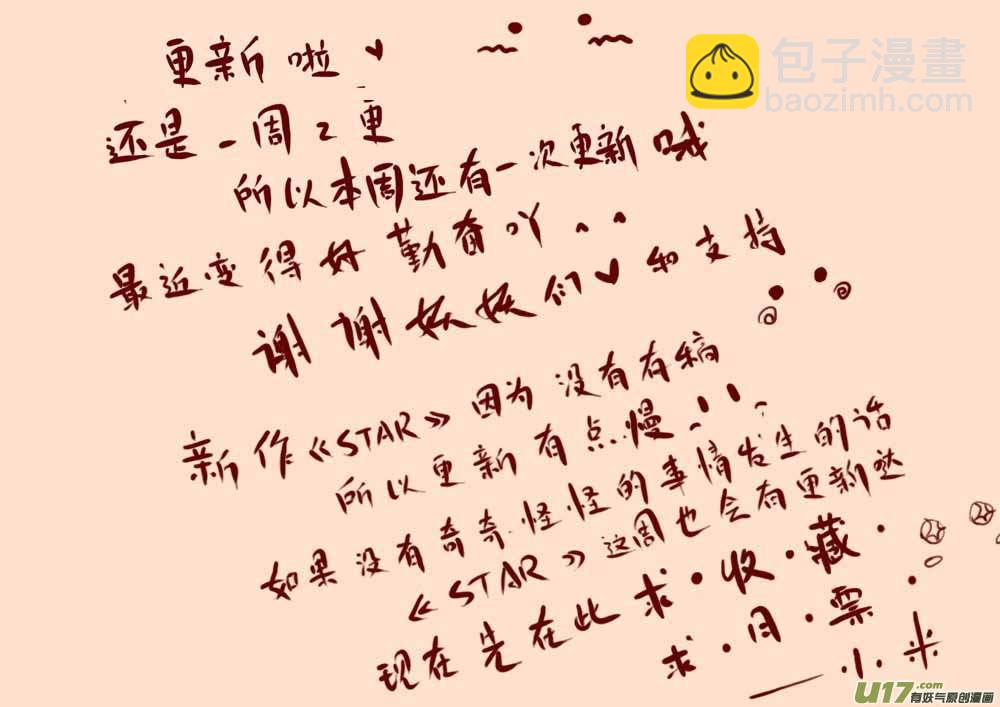 更新啦
包子漫畫
baozimh.com
还是一周2更
所以本周还有一次更新哦
最近变得好勤奋吖..
谢谢妖妖们♥和支持
新作《STAR》因为没有存稿
所以更新有点慢!!..
如果没有奇奇怪怪的事情发生的话
《STAR》这周也会有更新哒
现在先在此求·收·藏·
求·月·票·
——小米
U17.com
有妖气原创漫画